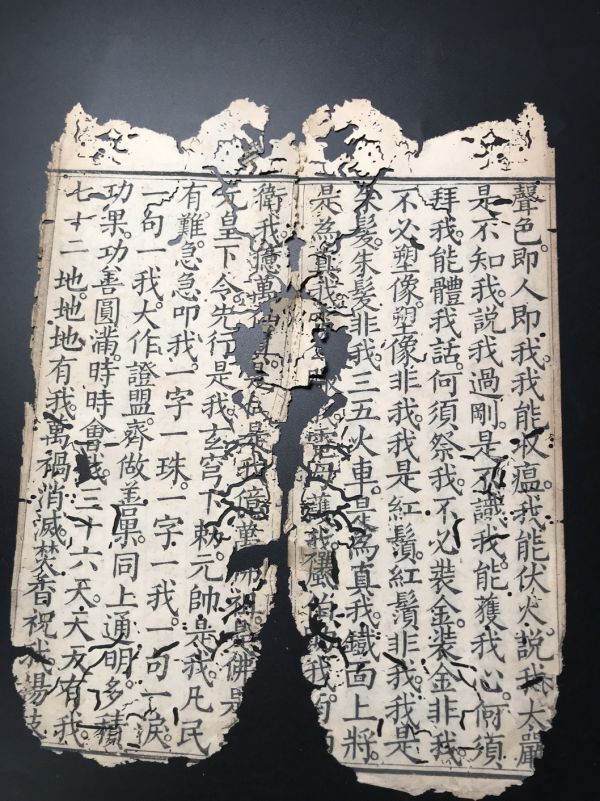 聲色。即人即我。我能收瘟。我能伏火。說我太嚴。
是不知我。說我過剛。是不識我。能獲我心。何須
拜我。能體我話。何須祭我。不必裝金。裝金非我。
不必塑像。塑像非我。我是紅鬚。紅鬚非我。我是
朱髮。朱髮非我。三五火車。是為真我。鐵面上將。
是為真我。電母護我。風我
衛我。億萬是我。億萬佛祖。是佛是
元皇下令。先行是我。玄穹下敕。元帥是我。凡民
有難。急急叩我。一字一珠。一字一我。一句一淚。
一句一我。大作證盟。齊做善果。同上通明。多積
功果。功善圓滿。時時會我。三十六天。天天有我。
七十二地。地地有我。萬禍消滅。焚香祝我。揚